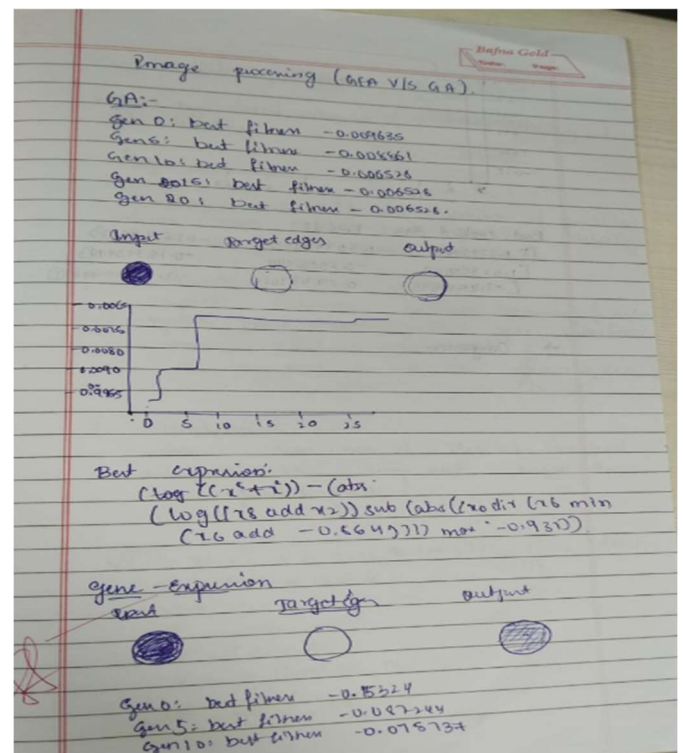 Bafna Gold
Date: Page:
Image processing (GEA V/S GA).
GA:-
Gen 0: best fitness -0.009635
Gen 5: best fitness -0.008461
Gen 10: best fitness -0.006528
Gen 2015: best fitness -0.006528
Gen 20: best fitness -0.006528.
Input Target edges Output
-0.0065
-0.0075
-0.0080
-0.0090
0 5 10 15 20 25
Best expression:
(log((x5+x)) - (abs
(log((x8 add x2)) sub (abs((x0 div (x6 min
(x6 add -0.8649))) max -0.937))
Gene - Expression
Input Target edges Output
Gen 0: best fitness -0.15324
Gen 5: best fitness -0.087244
Gen 10: best fitness -0.078737